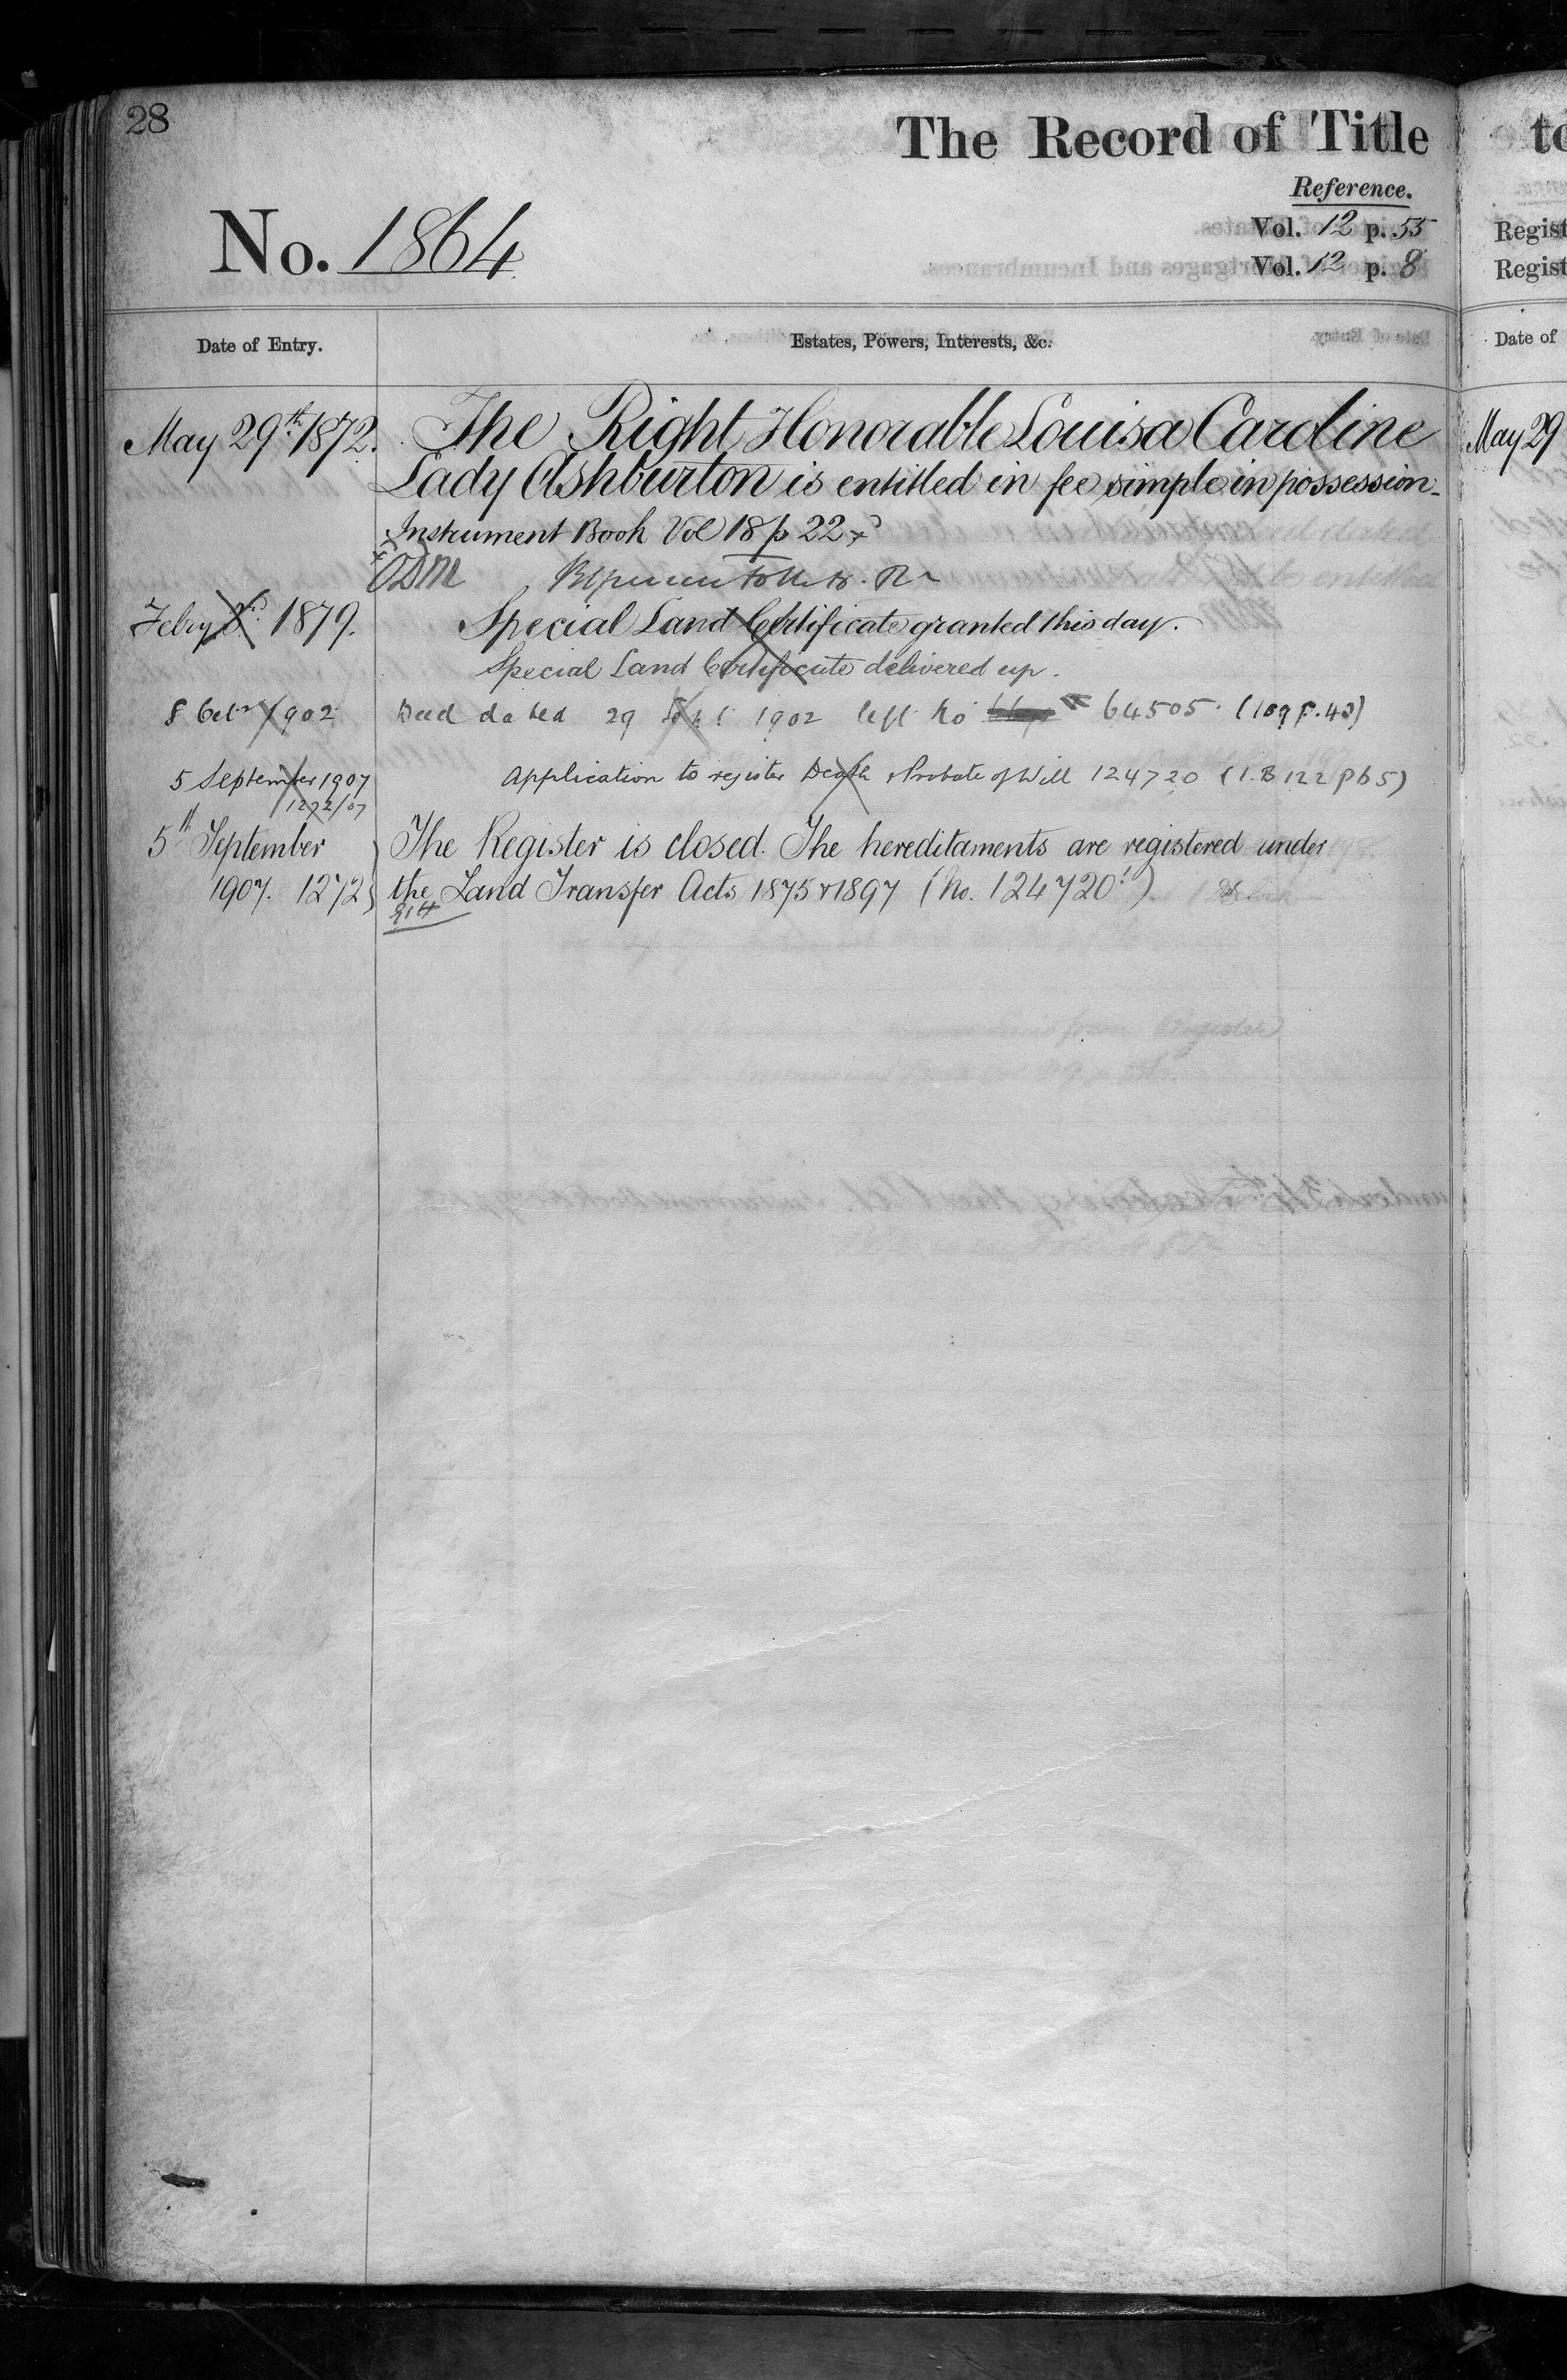 28
The Record of Title to
Reference.
Vol. 12 p. 55 Regist
No. 1864 Vol. 12 p. 8 Regist
Date of Entry. Estates, Powers, Interests, &c. Date of
May 29th 1872. The Right Honorable Louisa Caroline May 29
Lady Ashburton is entitled in fee simple in possession.
Instrument Book Vol 18 p 22
Febry 3rd 1879. Special Land Certificate granted this day.
Special Land Certificate delivered up.
8 Octr 1902 Deed dated 29 Sept 1902 left No 64505. (109 p. 43)
5 September 1907 Application to register Death & Probate of Will 124720 (I.B 122 p 65)
1272/07
5th September The Register is closed. The hereditaments are registered under
1907. 1272 the Land Transfer Acts 1875 & 1897 (No. 124720)